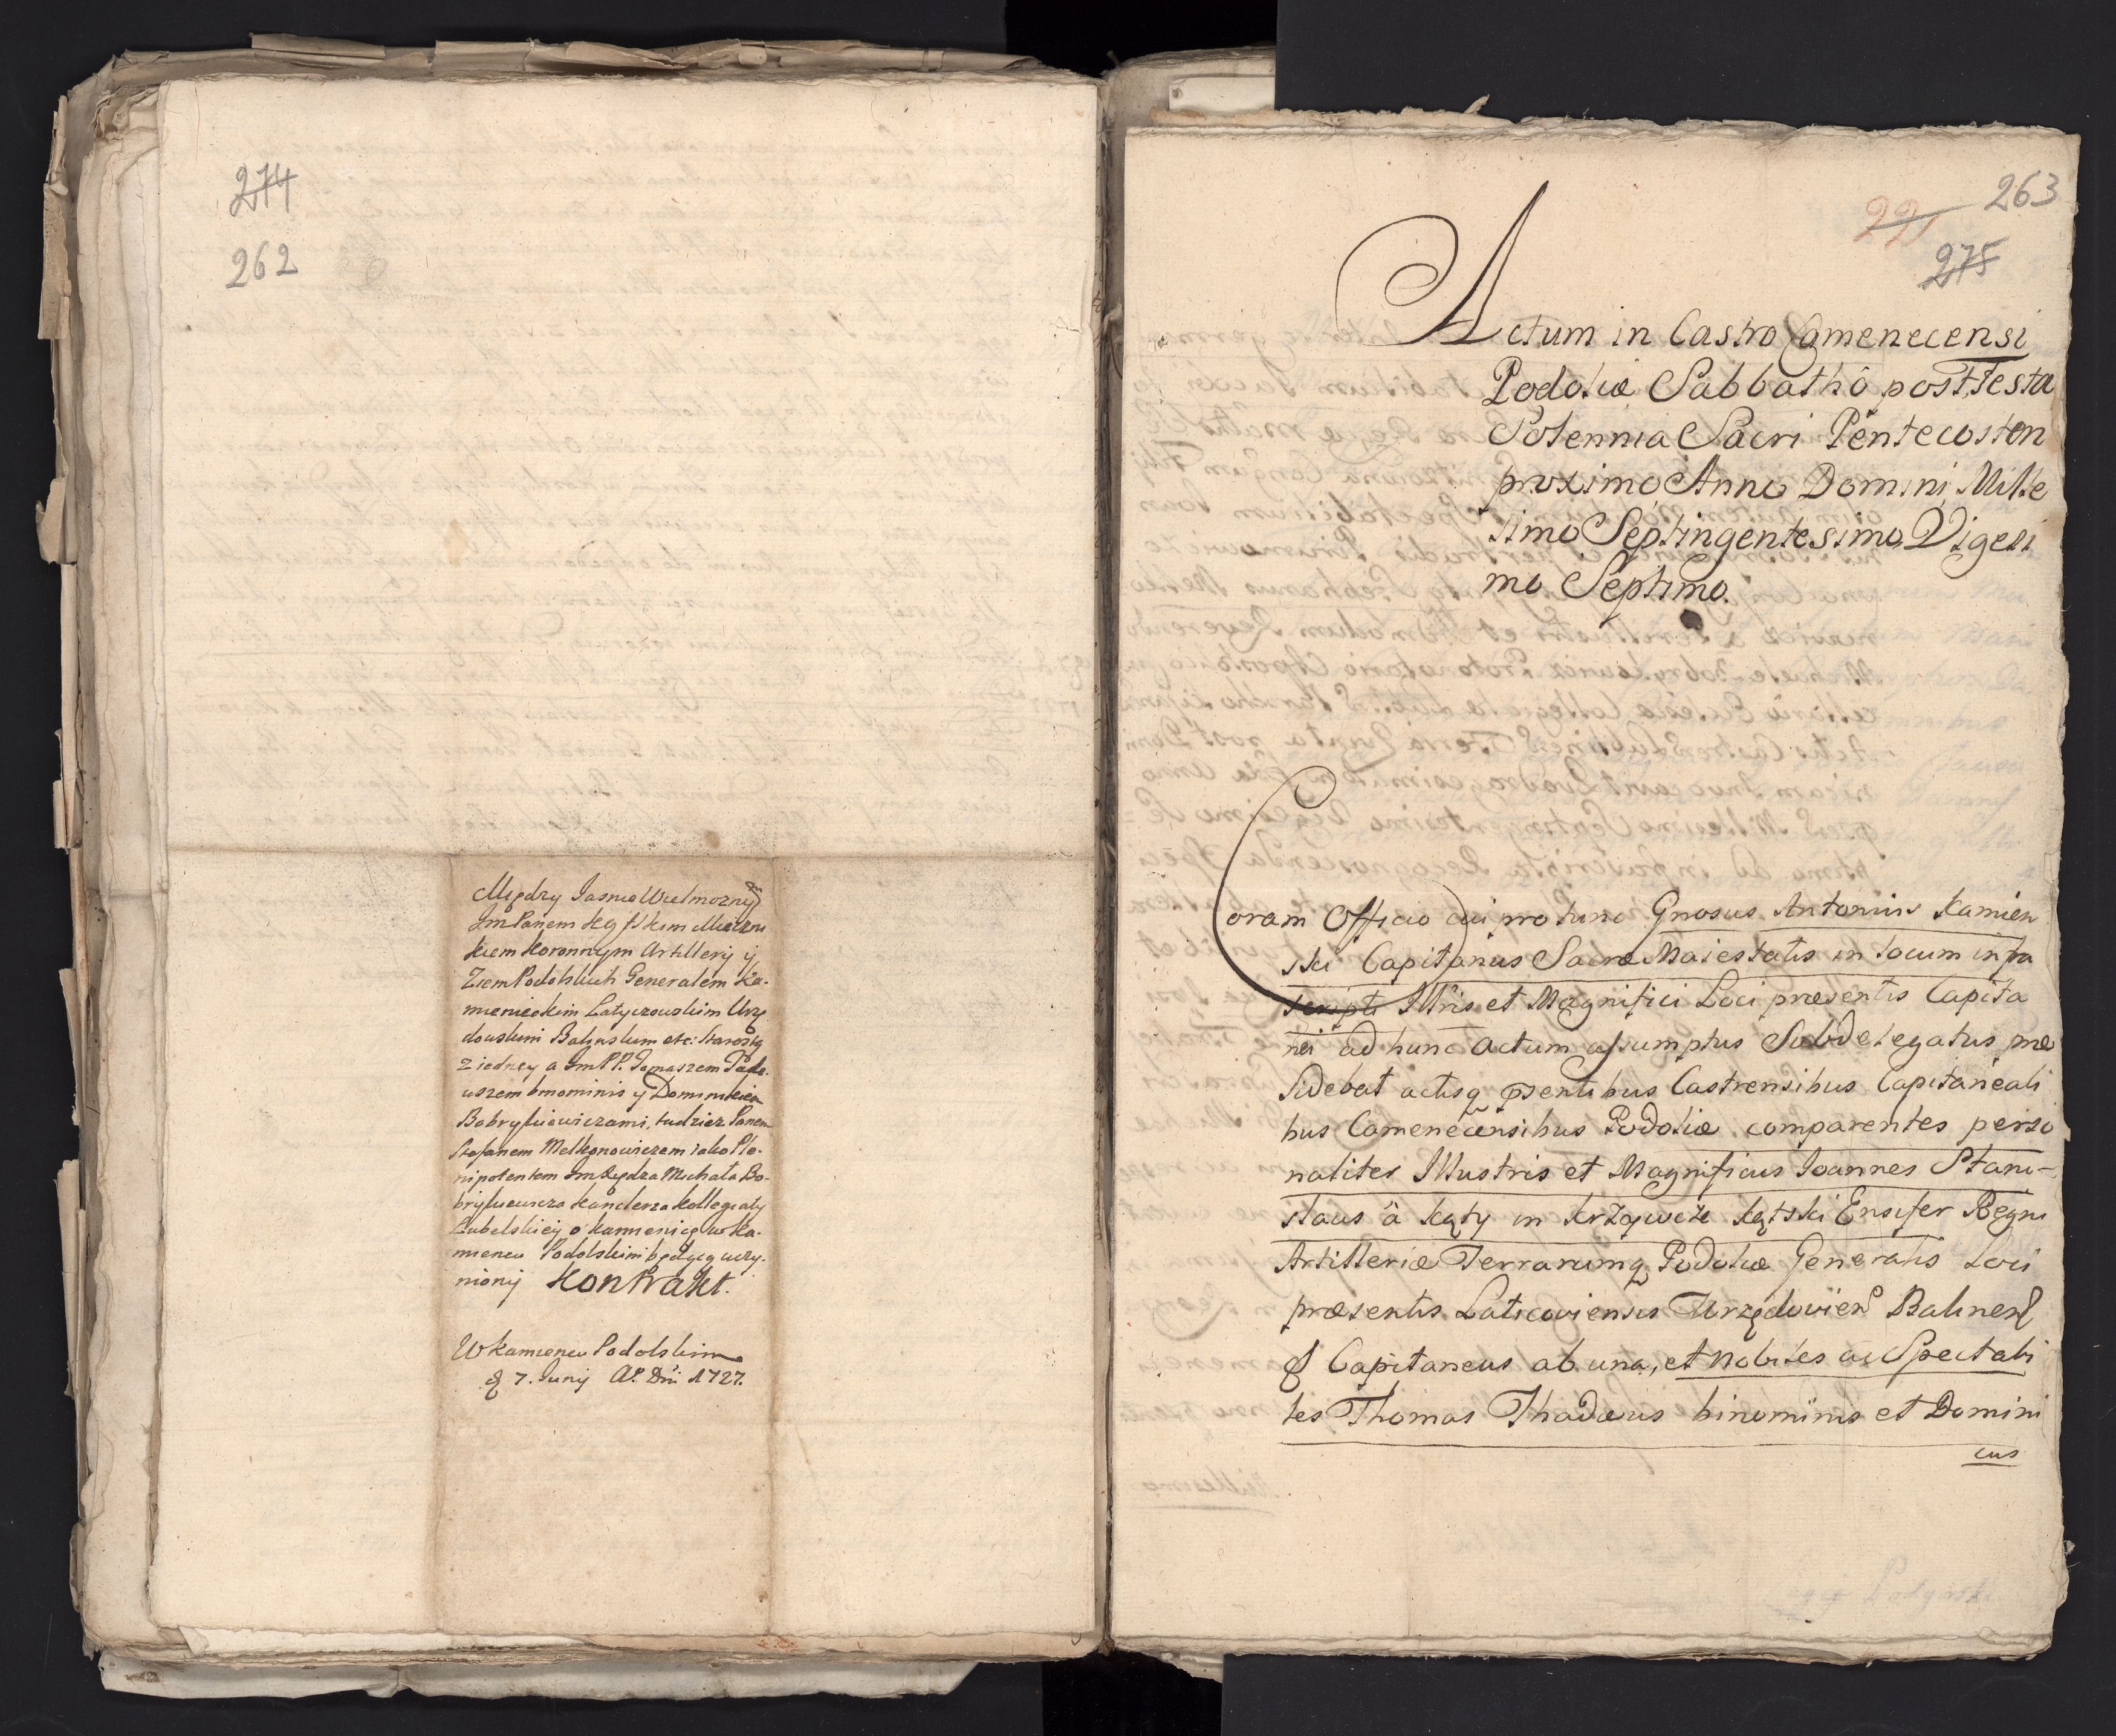 274
262
Między Jasnie Wielmoznÿm
Jm Panem Kątskim Mieczni
kiem Koronnym Artillerÿ ÿ
Ziem Podolskich Generałem Ka-
mienieckim Latyczowskim Urzę
dowskim Balinskim etc: Starostą
z iedney a Jm PP. Tomaszem Tade-
uszem bmominis ÿ Dominikiem
Bobrykiewiczami, tudziez Panem
Stefanem Melkonowiczem iako Ple-
nipotentem Jm Xiędza Michała Bo-
brykiewicza Kanclerza Kollegiaty
Lubelskiey o kamienicę w Ka-
miencu Podolskim będącą uczy-
nionÿ Kontrakt.
W Kamiencu Podolskim
d 7. Junij A̅o̅ Dni 1727.
263
221
275
Actum in Castro Camenecensi
Podoliæ Sabbathô post Festa
Solennia Sacri Pentecosten
proximo, Anno Domini Mille
simo Septingentesimo Vigesi
mo Septimo.
Coram Officio cui pro tunc Gnosus Antonius Kamien
ski Capitanus Sacræ Maiestatis in locum infra
scripti Illris et Magnifici Loci præsentis Capita
nei ad hunc actum assumptus Subdelegatus præ
sidebat actisq psentibus Castrensibus Capitaneali
bus Camenecensibus Podoliæ comparentes perso
naliter Illustris et Magnificus Joannes Stani-
slaus â Kąty in Krzywcze Kątski Ensifer Regni
Artilleriæ Terrarumq Podoliæ Generalis Loci
præsentis Laticoviensis Urzędovien Balinen
& Capitaneus ab una, et Nobiles ac Spectabi
les Thomas Thadæus binominis et Domini
cus